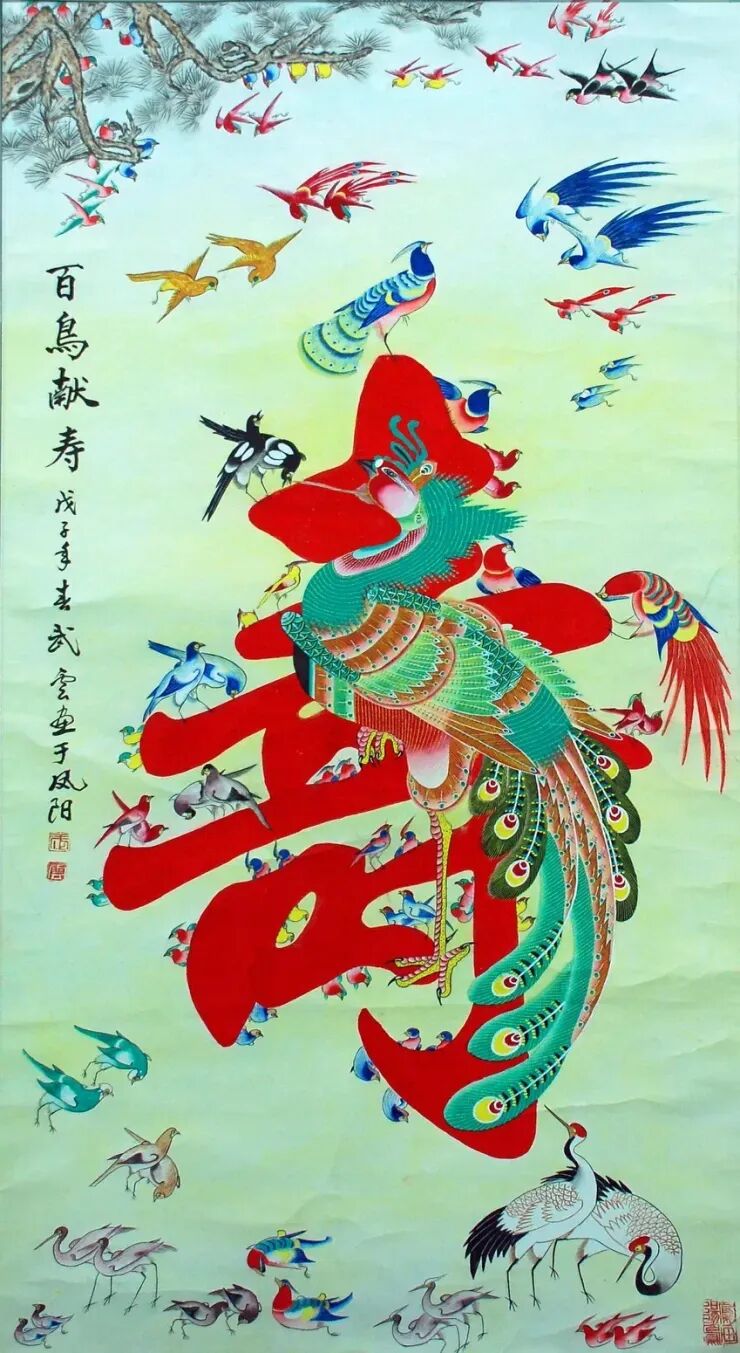 百鳥献寿
戊子年春武雲画于凤阳
武
雲
寿